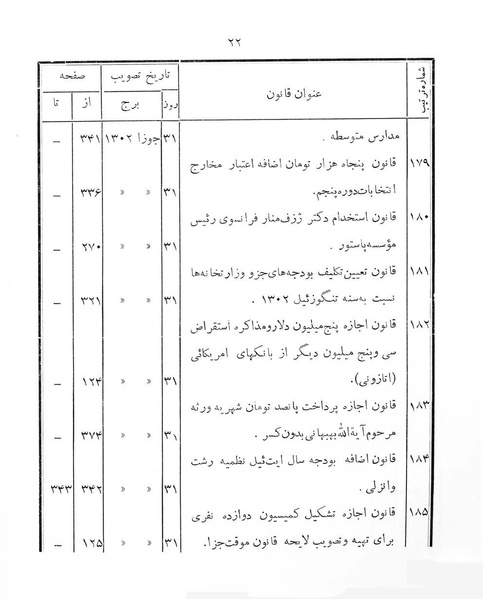 ۲۲
شماره ترتیب عنوان قانون تاریخ تصویب صفحه
روز برج از تا
مدارس متوسطه . ۳۱ جوزا ۱۳۰۲ ۳۴۱ —
۱۷۹ قانون پنجاه هزار تومان اضافه اعتبار مخارج
انتخابات دوره پنجم. ۳۱ » » ۳۳۶ —
۱۸۰ قانون استخدام دکتر ژزف منار فرانسوی رئیس
مؤسسه پاستور . ۳۱ » » ۲۷۰ —
۱۸۱ قانون تعیین تکلیف بودجه‌های جزو وزارتخانه‌ها
نسبت به سنه تنگوزئیل ۱۳۰۲ . ۳۱ » » ۳۲۱ —
۱۸۲ قانون اجازه پنج میلیون دلار و مذاکره استقراض
سی و پنج میلیون دیگر از بانکهای امریکائی
(اتازونی). ۳۱ » » ۱۲۴ —
۱۸۳ قانون اجازه پرداخت پانصد تومان شهریه ورثه
مرحوم آیة‌الله بهبهانی بدون کسر . ۳۱ » » ۳۷۴ —
۱۸۴ قانون اضافه بودجه سال ایت‌ئیل نظمیه رشت
و انزلی . ۳۱ » » ۳۴۲ ۳۴۳
۱۸۵ قانون اجازه تشکیل کمیسیون دوازده نفری
برای تهیه و تصویب لایحه قانون موقت جزا. ۳۱ » » ۱۲۵ —